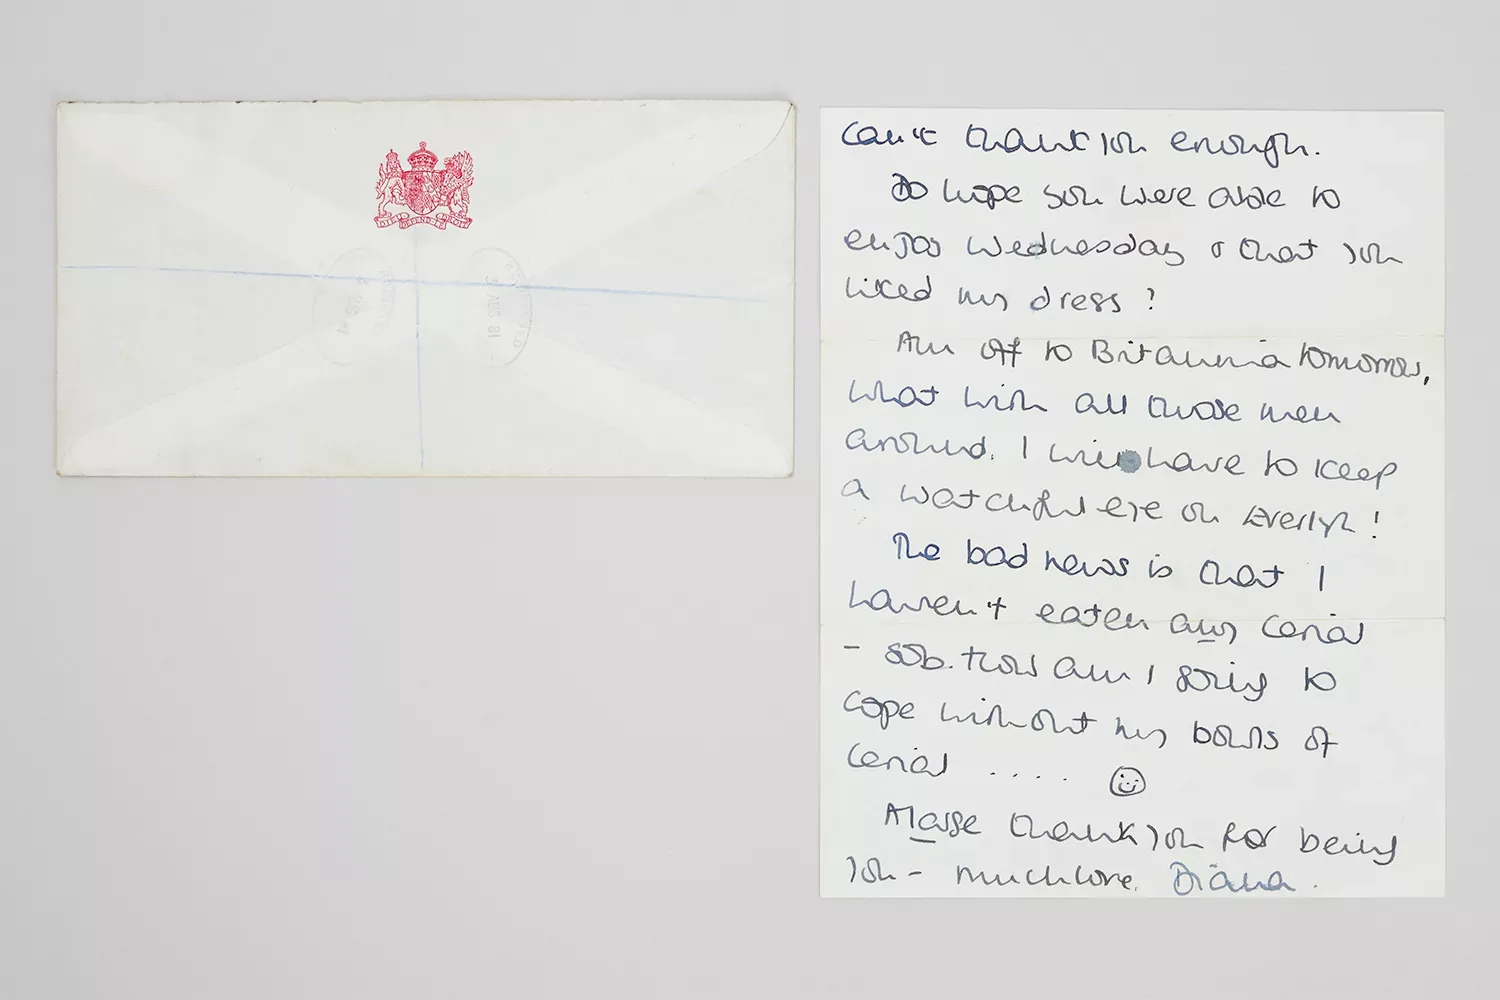 DIEU DEFEND LE DROIT
can't thank you enough.
Do hope you were able to
enjoy Wednesday & that you
liked my dress?
Am off to Britannia tomorrow,
what with all those men
around. I will have to keep
a watchful eye on Everlyn!
The bad news is that I
haven't eaten any cerial
- sob. How am I going to
cope without my bowls of
cerial ....
A large thank you for being
you - much love, Diana.